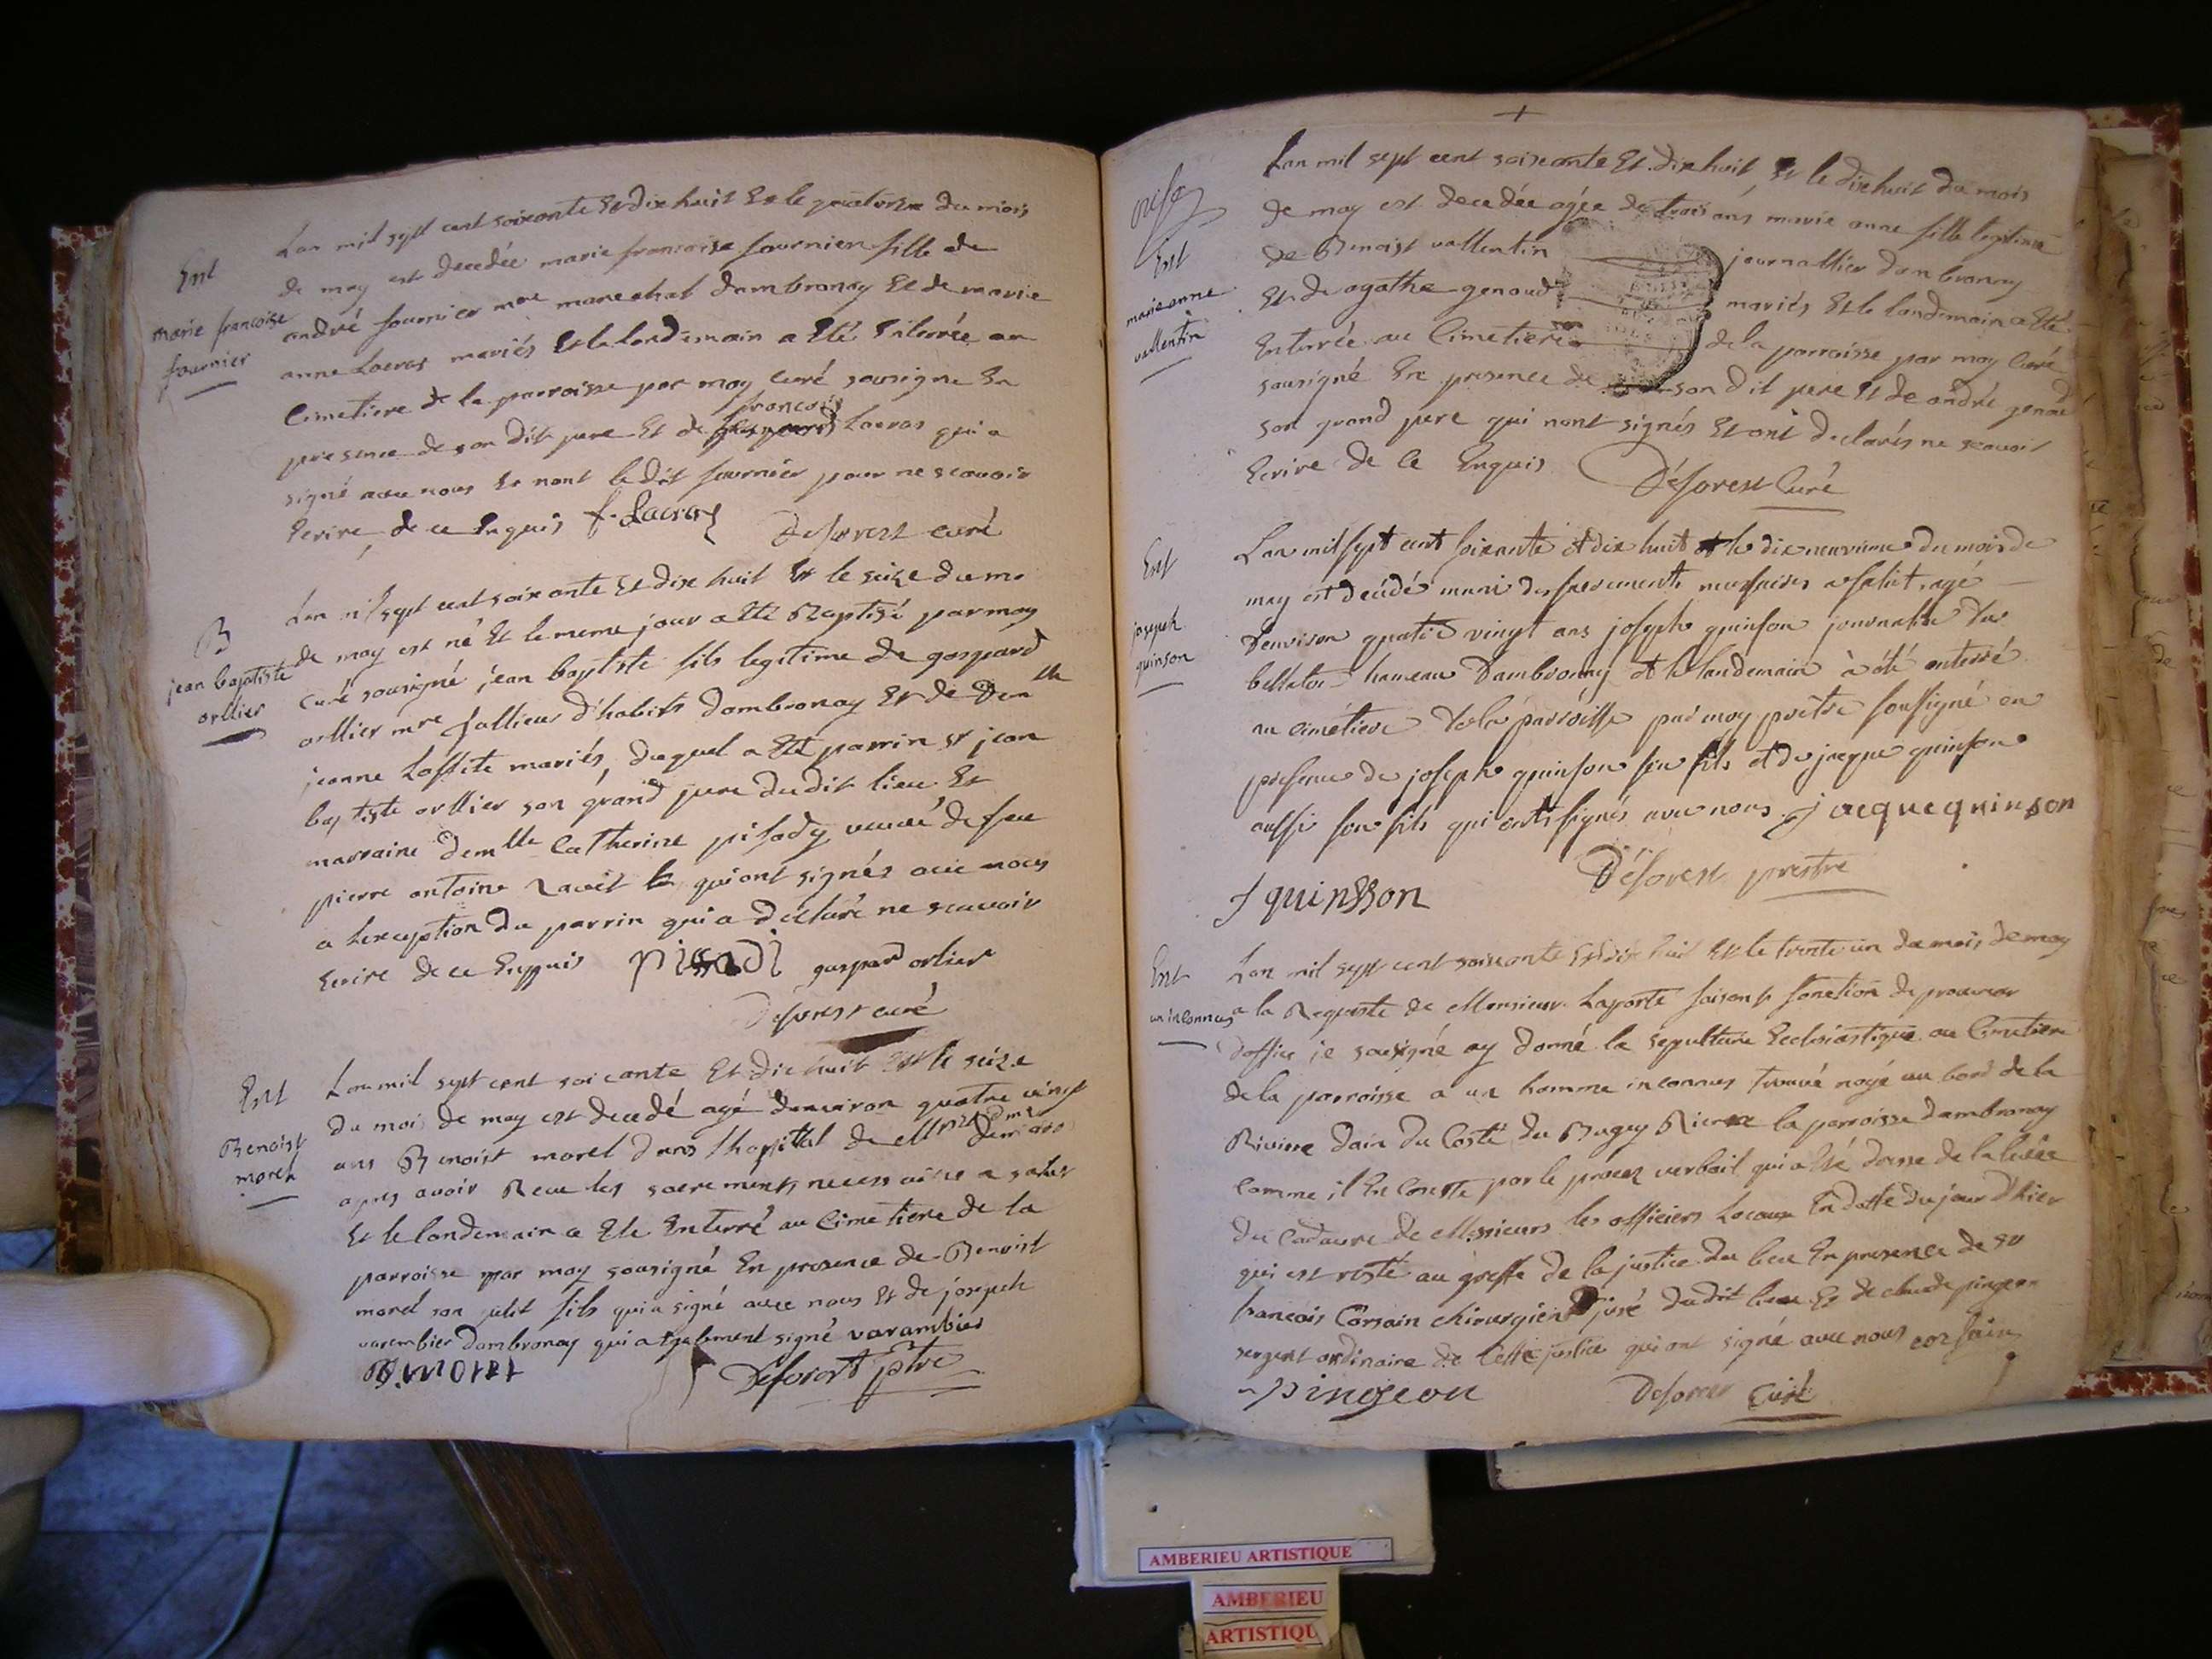 Ent
marie francoise
fournier
Lan mil sept cent soixante et dix huit et le quatorze du mois
de may est decedée marie francoise fournier fille de
andré fournier mre marechal dambronay et de marie
anne Lacras mariés et le landemain a eté enterrée au
Cimetiere de la parroisse par moy curé sousigne en
francois
presence de son dit pere et de Lacras qui a
signé avec nous et nont le dit fournier pour ne scavoir
ecrire, de ce enquis f. Lacras Deforest curé
B
jean baptiste
orllier
Lan mil sept cent soixante et dix huit et le seize du mo
de may est né et le meme jour a eté Baptisé par moy
curé sousigné jean baptiste fils legitime de gaspard
orllier mre tallieur d'habits dambronay et de Demlle
jeanne Laffite mariés, duquel a eté parrin sr jean
baptiste orllier son grand pere dudit lieu et
marraine demlle Catherine pisady veuve de feu
pierre antoine ravet qui ont signés avec nous
a lexception du parrin qui a déclaré ne scavoir
ecrire de ce enquis pissadi gaspard orlier
Deforest curé
Ent
Benoist
morel
Lan mil sept cent soicante et dix huit et le seize
du mois de may est decedé agé denviron quatre vingt
ans Benoist morel dans lhopital de
apres avoir Receu les sacrements necessaires a salut
et le landemain a ete enterré au Cimetiere de la
parroisse par moy sousigné en presence de Benoist
morel son fils qui a signé avec nous et de joseph
varembier dambronay qui a egalement signé varambier
B. morel Deforest ptre
Ent
marie anne
vallentin
Lan mil sept cent soixante et dix huit, et le dix huit du mois
de may est decedée agée de trois ans marie anne fille legitime
de Benoist vallentin journallier dambronay
et de agathe genoud mariés et le landemain a eté
enterrée au Cimetiere de la parroisse par moy Curé
sousigné en presence de son dit pere et de andré genoud
son grand pere qui nont signés et ont declarés ne scavoir
ecrire de ce enquis Déforest Curé
Ent
joseph
quinson
Lan mil sept cent soixante et dix huit et le dix neuvieme du mois de
may est décédé muni des sacrements necessaires a salut, agé
Denviron quatre vingt ans joseph quinson journalier du
hameau Dambronay et le landemain à été enterré
au cimétiere de la parroisse par moy prêtre sousigné en
presence de joseph quinson son fils et de jacque quinson
aussi son fils qui ont signés avec nous. jacque quinson
Déforest prestre
J quinsson
Ent
un inconnus
Lan mil sept cent soixante et dix huit et le trente un du mois de may
a la Requeste de Monsieur Laporte faisant fonction de procureur
d'office je sousigné ay donné la sepulture Ecclesiastique au Cimetiere
de la parroisse a un homme inconnus trouvé noyé au bord de la
Riviere dain du Costé du Bugey Riere la parroisse dambronay
comme il en Conste par le proces verbail qui a eté dresse de la levée
du Cadavre de Messieurs les officiers Locaux en datte du jour d'hier
qui est resté au greffe de la justice du lieu en presence de sr
francois Corsain chirurgien juré dudit lieu et de claude pingeon
sergent ordinaire de cette justice qui ont signé avec nous corsain
pingeon Deforest Curé
AMBERIEU ARTISTIQUE
AMBERIEU
ARTISTIQU